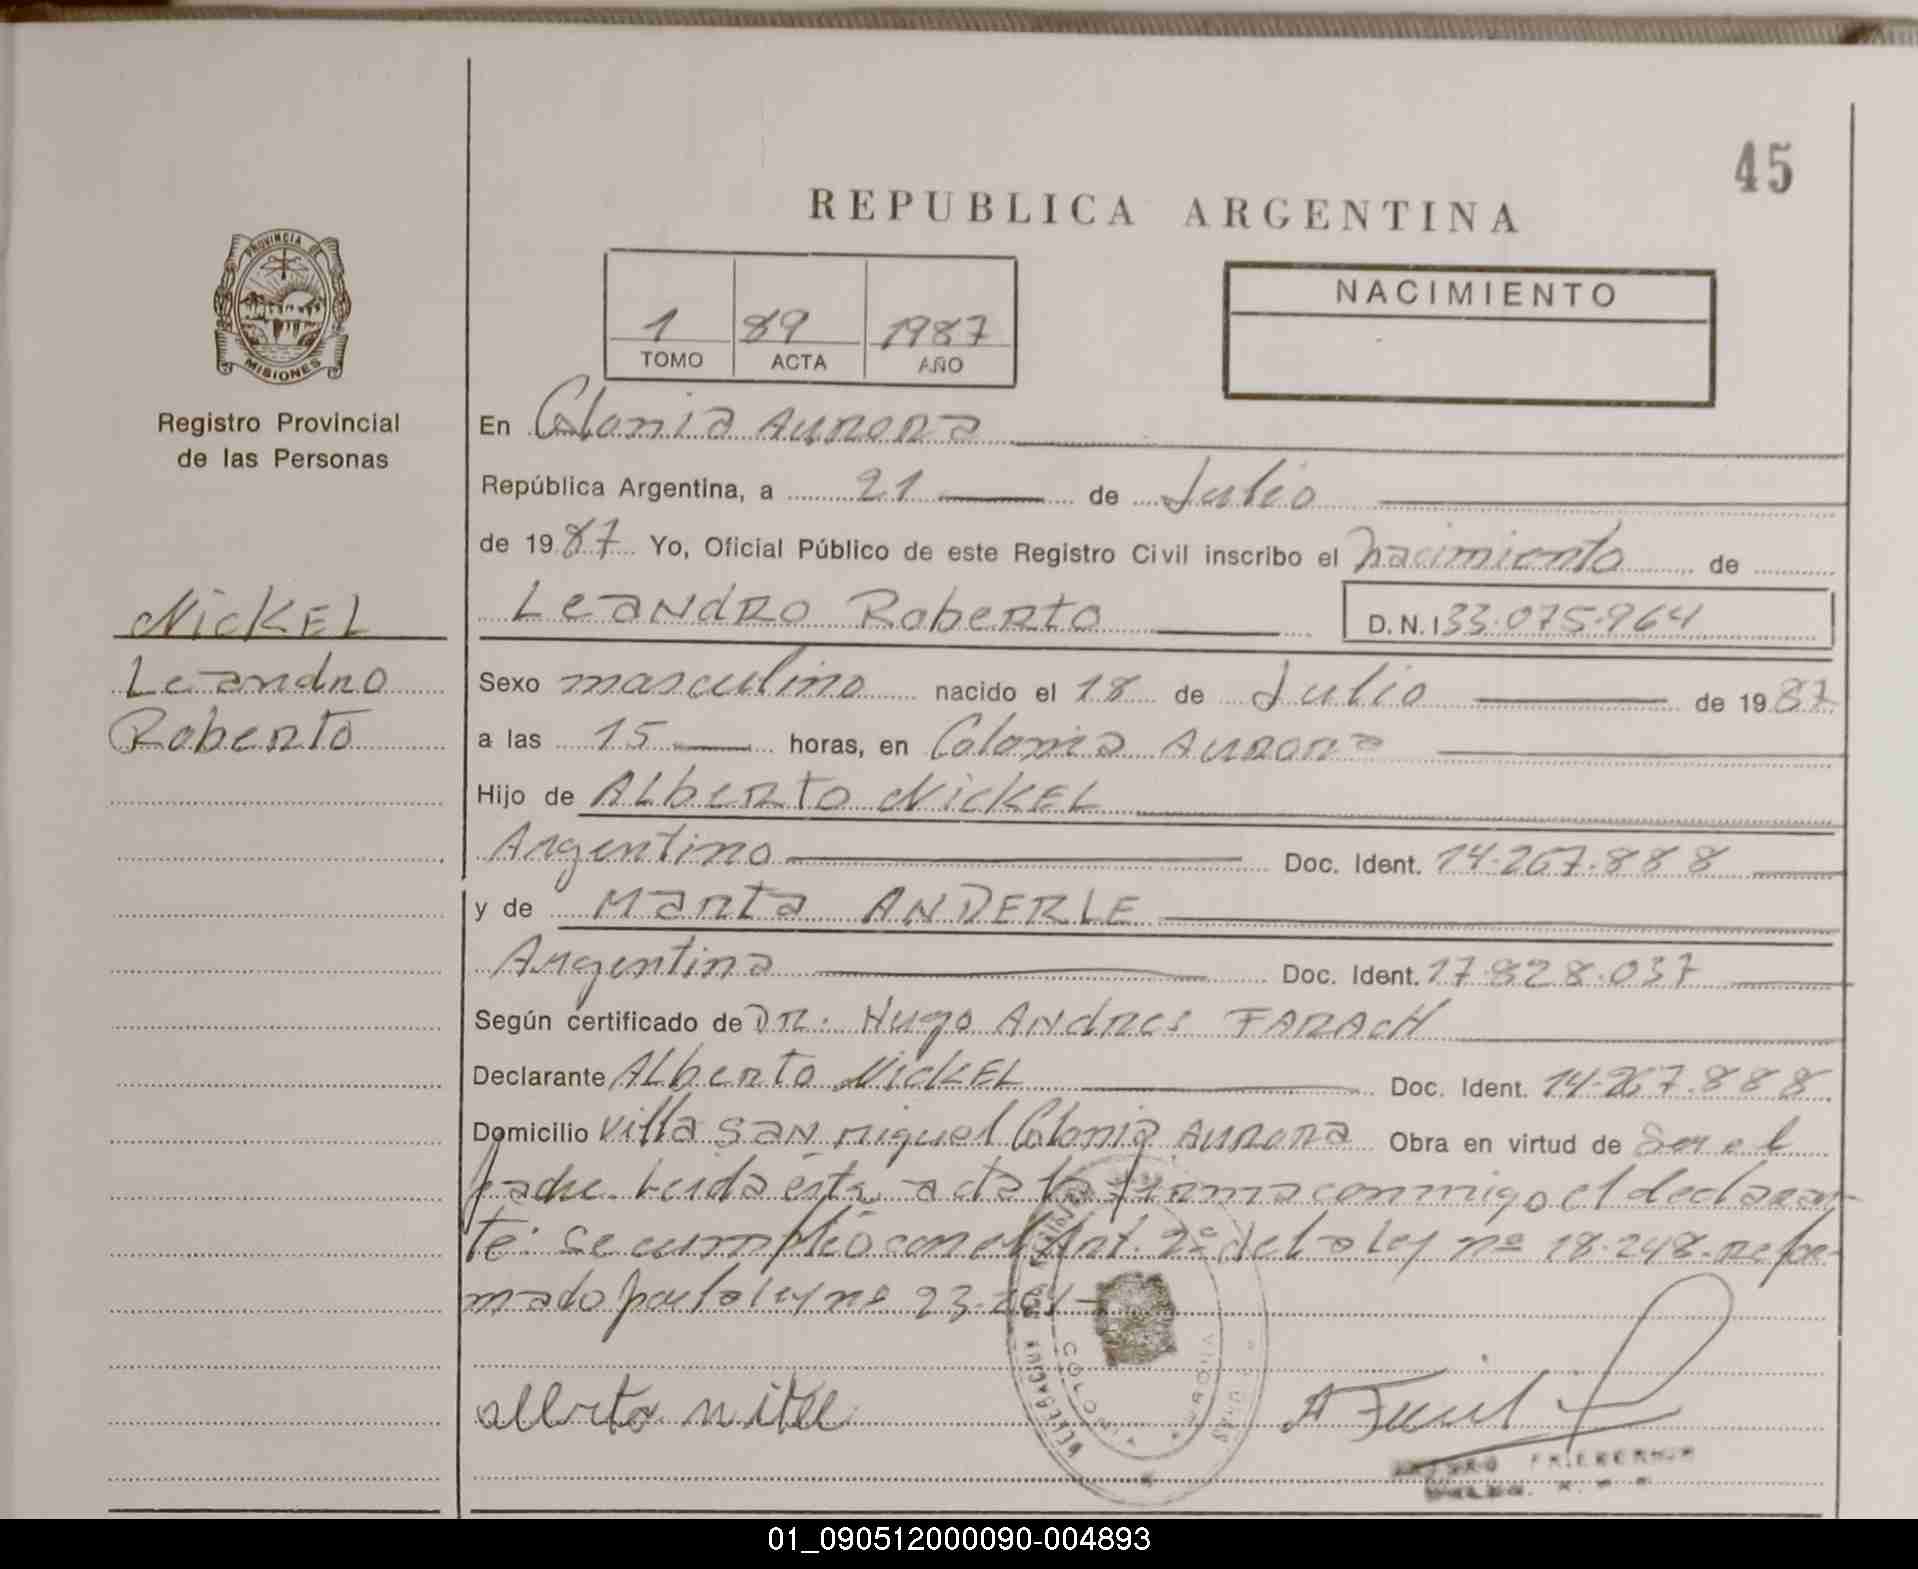 45
REPUBLICA ARGENTINA
PROVINCIA DE
MISIONES
Registro Provincial
de las Personas
1 89 1987
TOMO ACTA AÑO
NACIMIENTO
En Colonia Aurora
República Argentina, a 21 de Julio
de 1987 Yo, Oficial Público de este Registro Civil inscribo el nacimiento de
Leandro Roberto D.N.I 33.075.964
NickEL
Leandro
Roberto
Sexo masculino nacido el 18 de Julio de 1987
a las 15 horas, en Colonia Aurora
Hijo de Alberto NickEL
Argentino Doc. Ident. 14.267.888
y de Marta ANDERLE
Argentina Doc. Ident. 17.828.037
Según certificado de DR. Hugo Andres FARACH
Declarante Alberto NickEL Doc. Ident. 14.267.888
Domicilio Villa San Miguel Colonia Aurora Obra en virtud de Ser el
padre. Leida esta acta la firma conmigo el declaran-
te: Se cumplió con el Art. 2º de la ley nº 18.248. refor-
mado por la ley nº 23.264
COLONIA AURORA
01_090512000090-004893